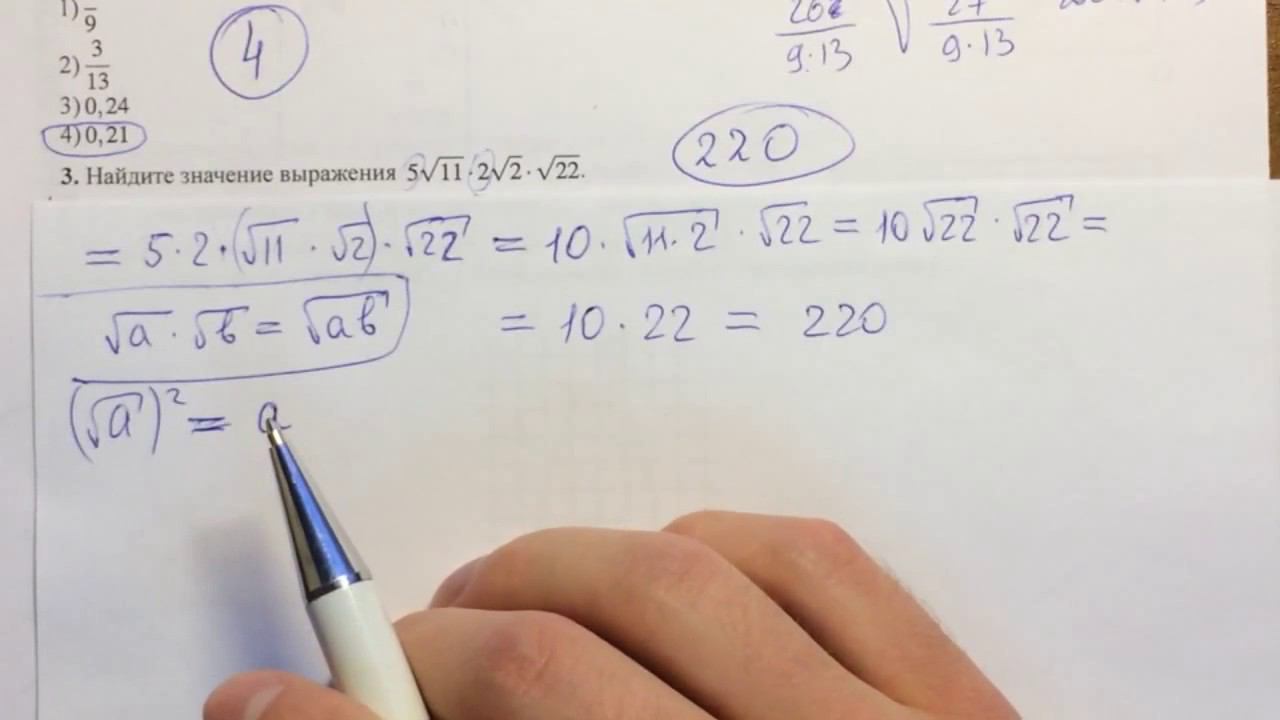 1) /9
2) 3/13
3) 0,24
4) 0,21
4
9·13
27/9·13
3. Найдите значение выражения 5√11 · 2√2 · √22.
220
= 5·2·(√11 · √2)·√22 = 10·√11·2 · √22 = 10√22 · √22 =
√a · √b = √ab
= 10·22 = 220
(√a)² = a